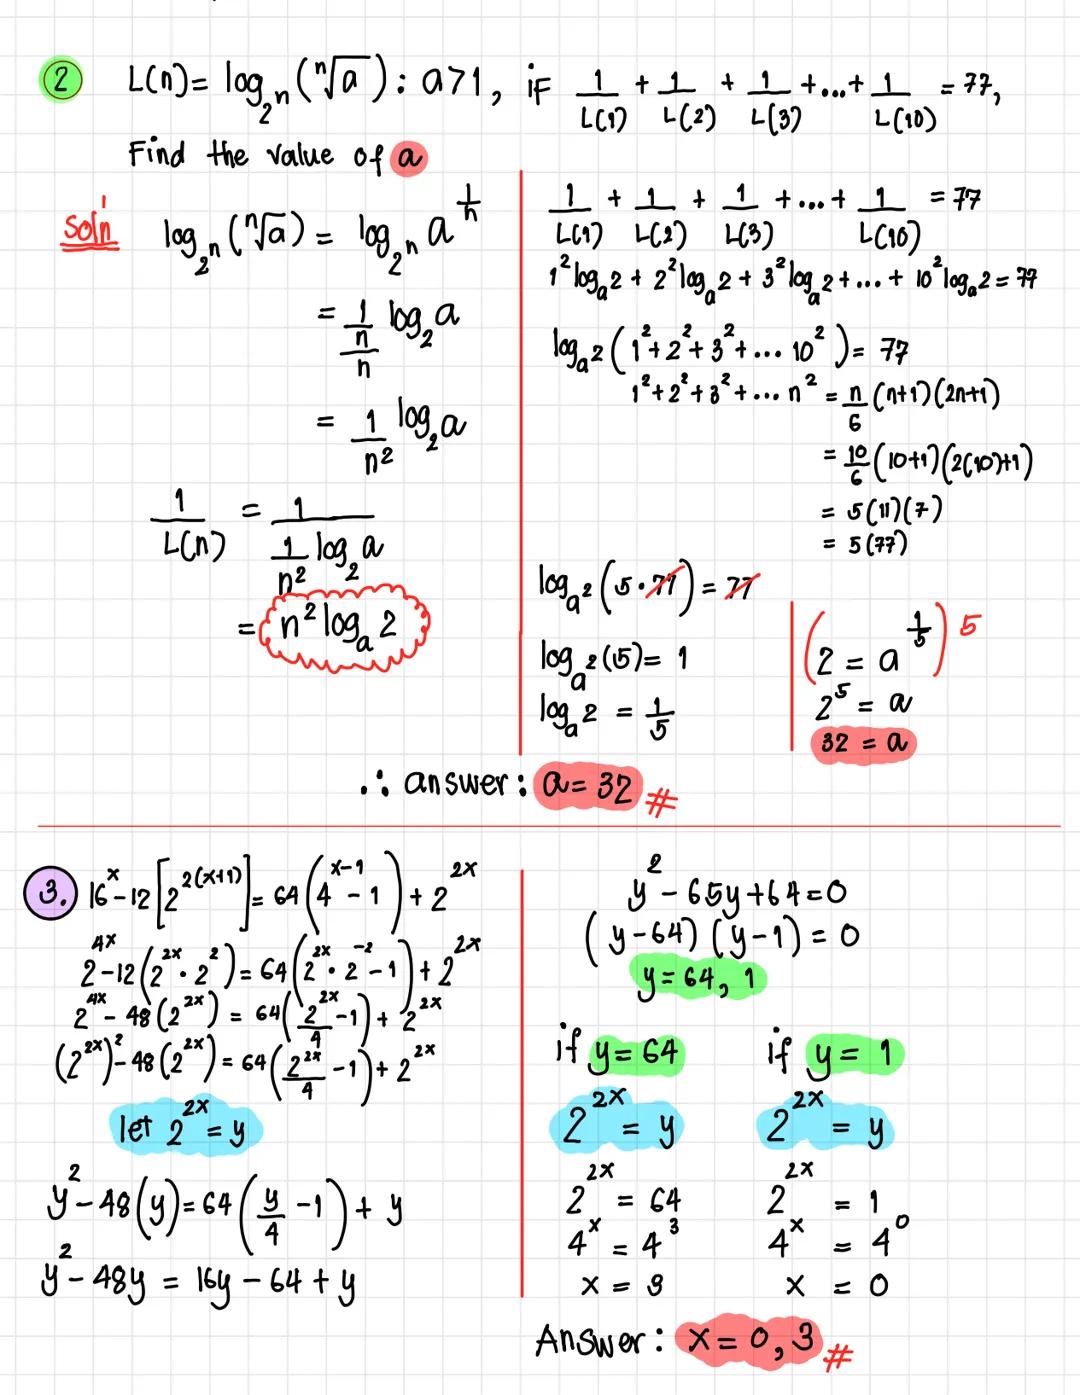 ② L(n) = log_{2^n}(ⁿ√a) : a>1, if 1/L(1) + 1/L(2) + 1/L(3) +...+ 1/L(10) = 77,
Find the value of a
soln
log_{2^n}(ⁿ√a) = log_{2^n} a^{1/n}
= (1/n)/n log₂a
= 1/n² log₂a
1/L(n) = 1/(1/n² log₂a)
= n² logₐ2
1/L(1) + 1/L(2) + 1/L(3) +...+ 1/L(10) = 77
1²logₐ2 + 2²logₐ2 + 3²logₐ2 +...+ 10²logₐ2 = 77
logₐ2(1²+2²+3²+...10²) = 77
1²+2²+3²+...n² = n/6 (n+1)(2n+1)
= 10/6 (10+1)(2(10)+1)
= 5(11)(7)
= 5(77)
logₐ2(5·77) = 77
logₐ2(5) = 1
logₐ2 = 1/5
(2 = a^{1/5})⁵
2⁵ = a
32 = a
∴ answer : a = 32 #
3. 16^x - 12[2^{2(x+1)}] = 64(4^{x-1} - 1) + 2^{2x}
2^{4x} - 12(2^{2x}·2²) = 64(2^{2x}·2^{-2} - 1) + 2^{2x}
2^{4x} - 48(2^{2x}) = 64(2^{2x}/4 - 1) + 2^{2x}
(2^{2x})² - 48(2^{2x}) = 64(2^{2x}/4 - 1) + 2^{2x}
let 2^{2x} = y
y² - 48(y) = 64(y/4 - 1) + y
y² - 48y = 16y - 64 + y
y² - 65y + 64 = 0
(y-64)(y-1) = 0
y = 64, 1
if y = 64
2^{2x} = y
2^{2x} = 64
4^x = 4³
x = 3
if y = 1
2^{2x} = y
2^{2x} = 1
4^x = 4⁰
x = 0
Answer : x = 0, 3 #